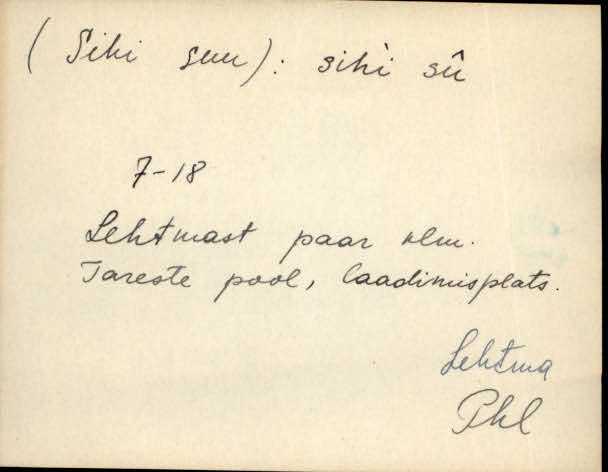 (Sihi suu): sihì sû
7-18
Lehtmast paar klm.
Tareste pool, laadimisplats.
Lehtma
Phl